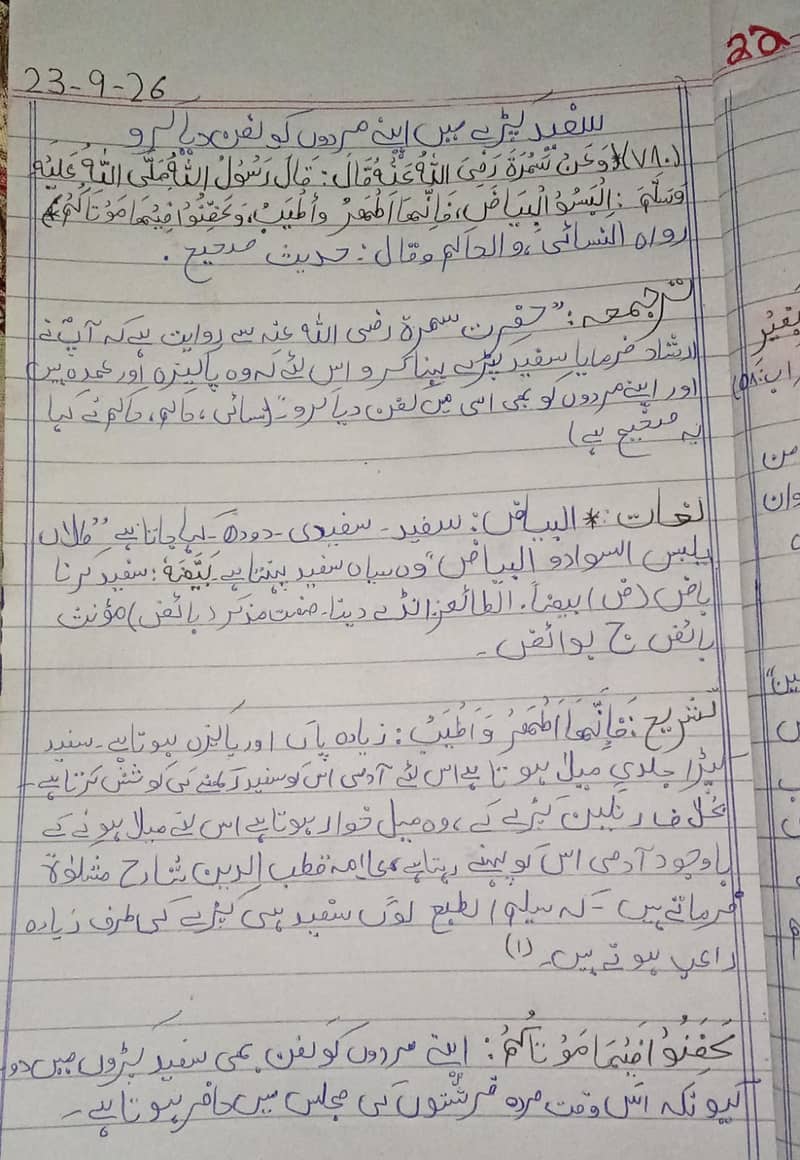 22
23-9-26
سفید کپڑے میں اپنے مردوں کو کفن دیا کرو
(٧٨٠) وَعَنْ سَمُرَةَ رَضِیَ اللّٰهُ عَنْهُ قَالَ: قَالَ رَسُوْلُ اللّٰهِ صَلَّی اللّٰهُ عَلَیْهِ
وَسَلَّمَ: اِلْبَسُوْ الْبَیَاضَ، فَاِنَّهَا اَطْهَرُ وَأَطْیَبُ، وَکَفِّنُوْا فِیْهَا مَوْتَاکُمْ
رواہ النسائی، والحاکم وقال: حدیث صحیح.
ترجمہ: "حضرت سمرۃ رضی اللہ عنہ سے روایت ہے کہ آپؐ نے
ارشاد فرمایا سفید کپڑے پہنا کرو اس لئے کہ وہ پاکیزہ اور عمدہ ہیں
اور اپنے مردوں کو بھی اسی میں کفن دیا کرو۔" (نسائی، حاکم، حاکم نے کہا
یہ صحیح ہے)
لغات: * البیاض: سفید۔ سفیدی۔ دودھ۔ کہا جاتا ہے "فلاں
یلبس السوادو البیاض" وہ سیاہ سفید پہنتا ہے۔ بَیَّضَهٗ: سفید کرنا
باض (ض) بیضاً. الطائعز انڈے دینا۔ صفت مذکر (بائض) مؤنث
بائض ج بوائض۔
تشریح: فَاِنَّهَا اَطْهَرُ وَاَطْیَبُ: زیادہ پاک اور پاکیزہ ہوتا ہے۔ سفید
کپڑا جلدی میلا ہوتا ہے اس لئے آدمی اس کو سفید رکھنے کی کوشش کرتا ہے
بخلاف رنگین کپڑے کے، وہ میل خوار ہوتا ہے اس لئے میلا ہونے کے
باوجود آدمی اس کو پہنے رہتا ہے علامہ قطب الدین شارح مشکوٰۃ
فرماتے ہیں۔ کہ سلیم الطبع لوگ سفید ہی کپڑے کی طرف زیادہ
راغب ہوتے ہیں۔ (۱)
کَفِّنُوْا فِیْهَا مَوْتَاکُمْ: اپنے مردوں کو کفن بھی سفید کپڑوں میں دو
کیونکہ اس وقت مردہ فرشتوں کی مجلس میں حاضر ہوتا ہے۔
من
وان